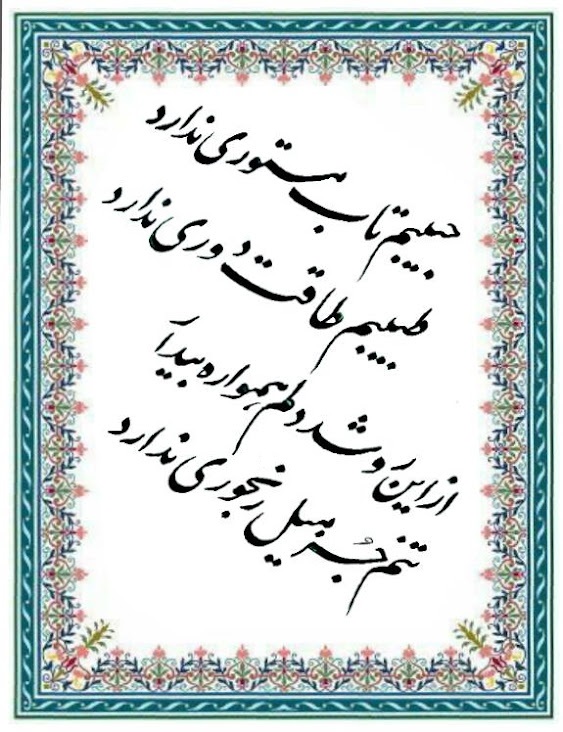 حبیبم تاب مستوری ندارد
طبیبم طاقت دوری ندارد
از این رو شد دلم همواره بیدار
تنم جز میل رنجوری ندارد